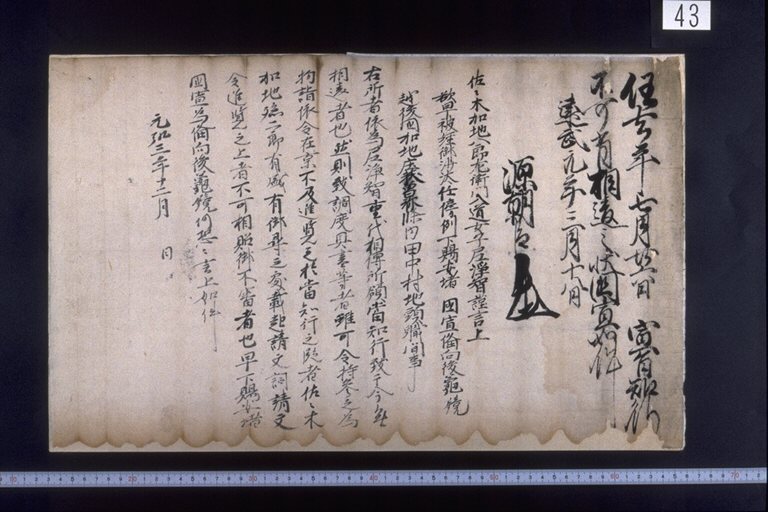 43
任去年七月廿六日 宣旨知行
不可有相違之状国宣如件
建武元年二月十八日
源朝臣
佐々木加地八郎左衛門入道女子尼浄智謹言上
欲早被経御沙汰任傍例下賜安堵 国宣備向後亀鏡
越後国加地庄 条内田中村地頭職間事
右所者依為尼浄智重代相伝所領当知行致于今無
相違者也然則致調度具書等者雖可令持参之為
拘諸依令在京不及進覧之於当知行之段者佐々木
加地 二郎有盛有御尋之処載起請文詞請文
令進覧之上者不可相貽御不審者也早下賜安堵
国宣為備向後亀鏡仍恐々言上如件
元弘三年十二月 日